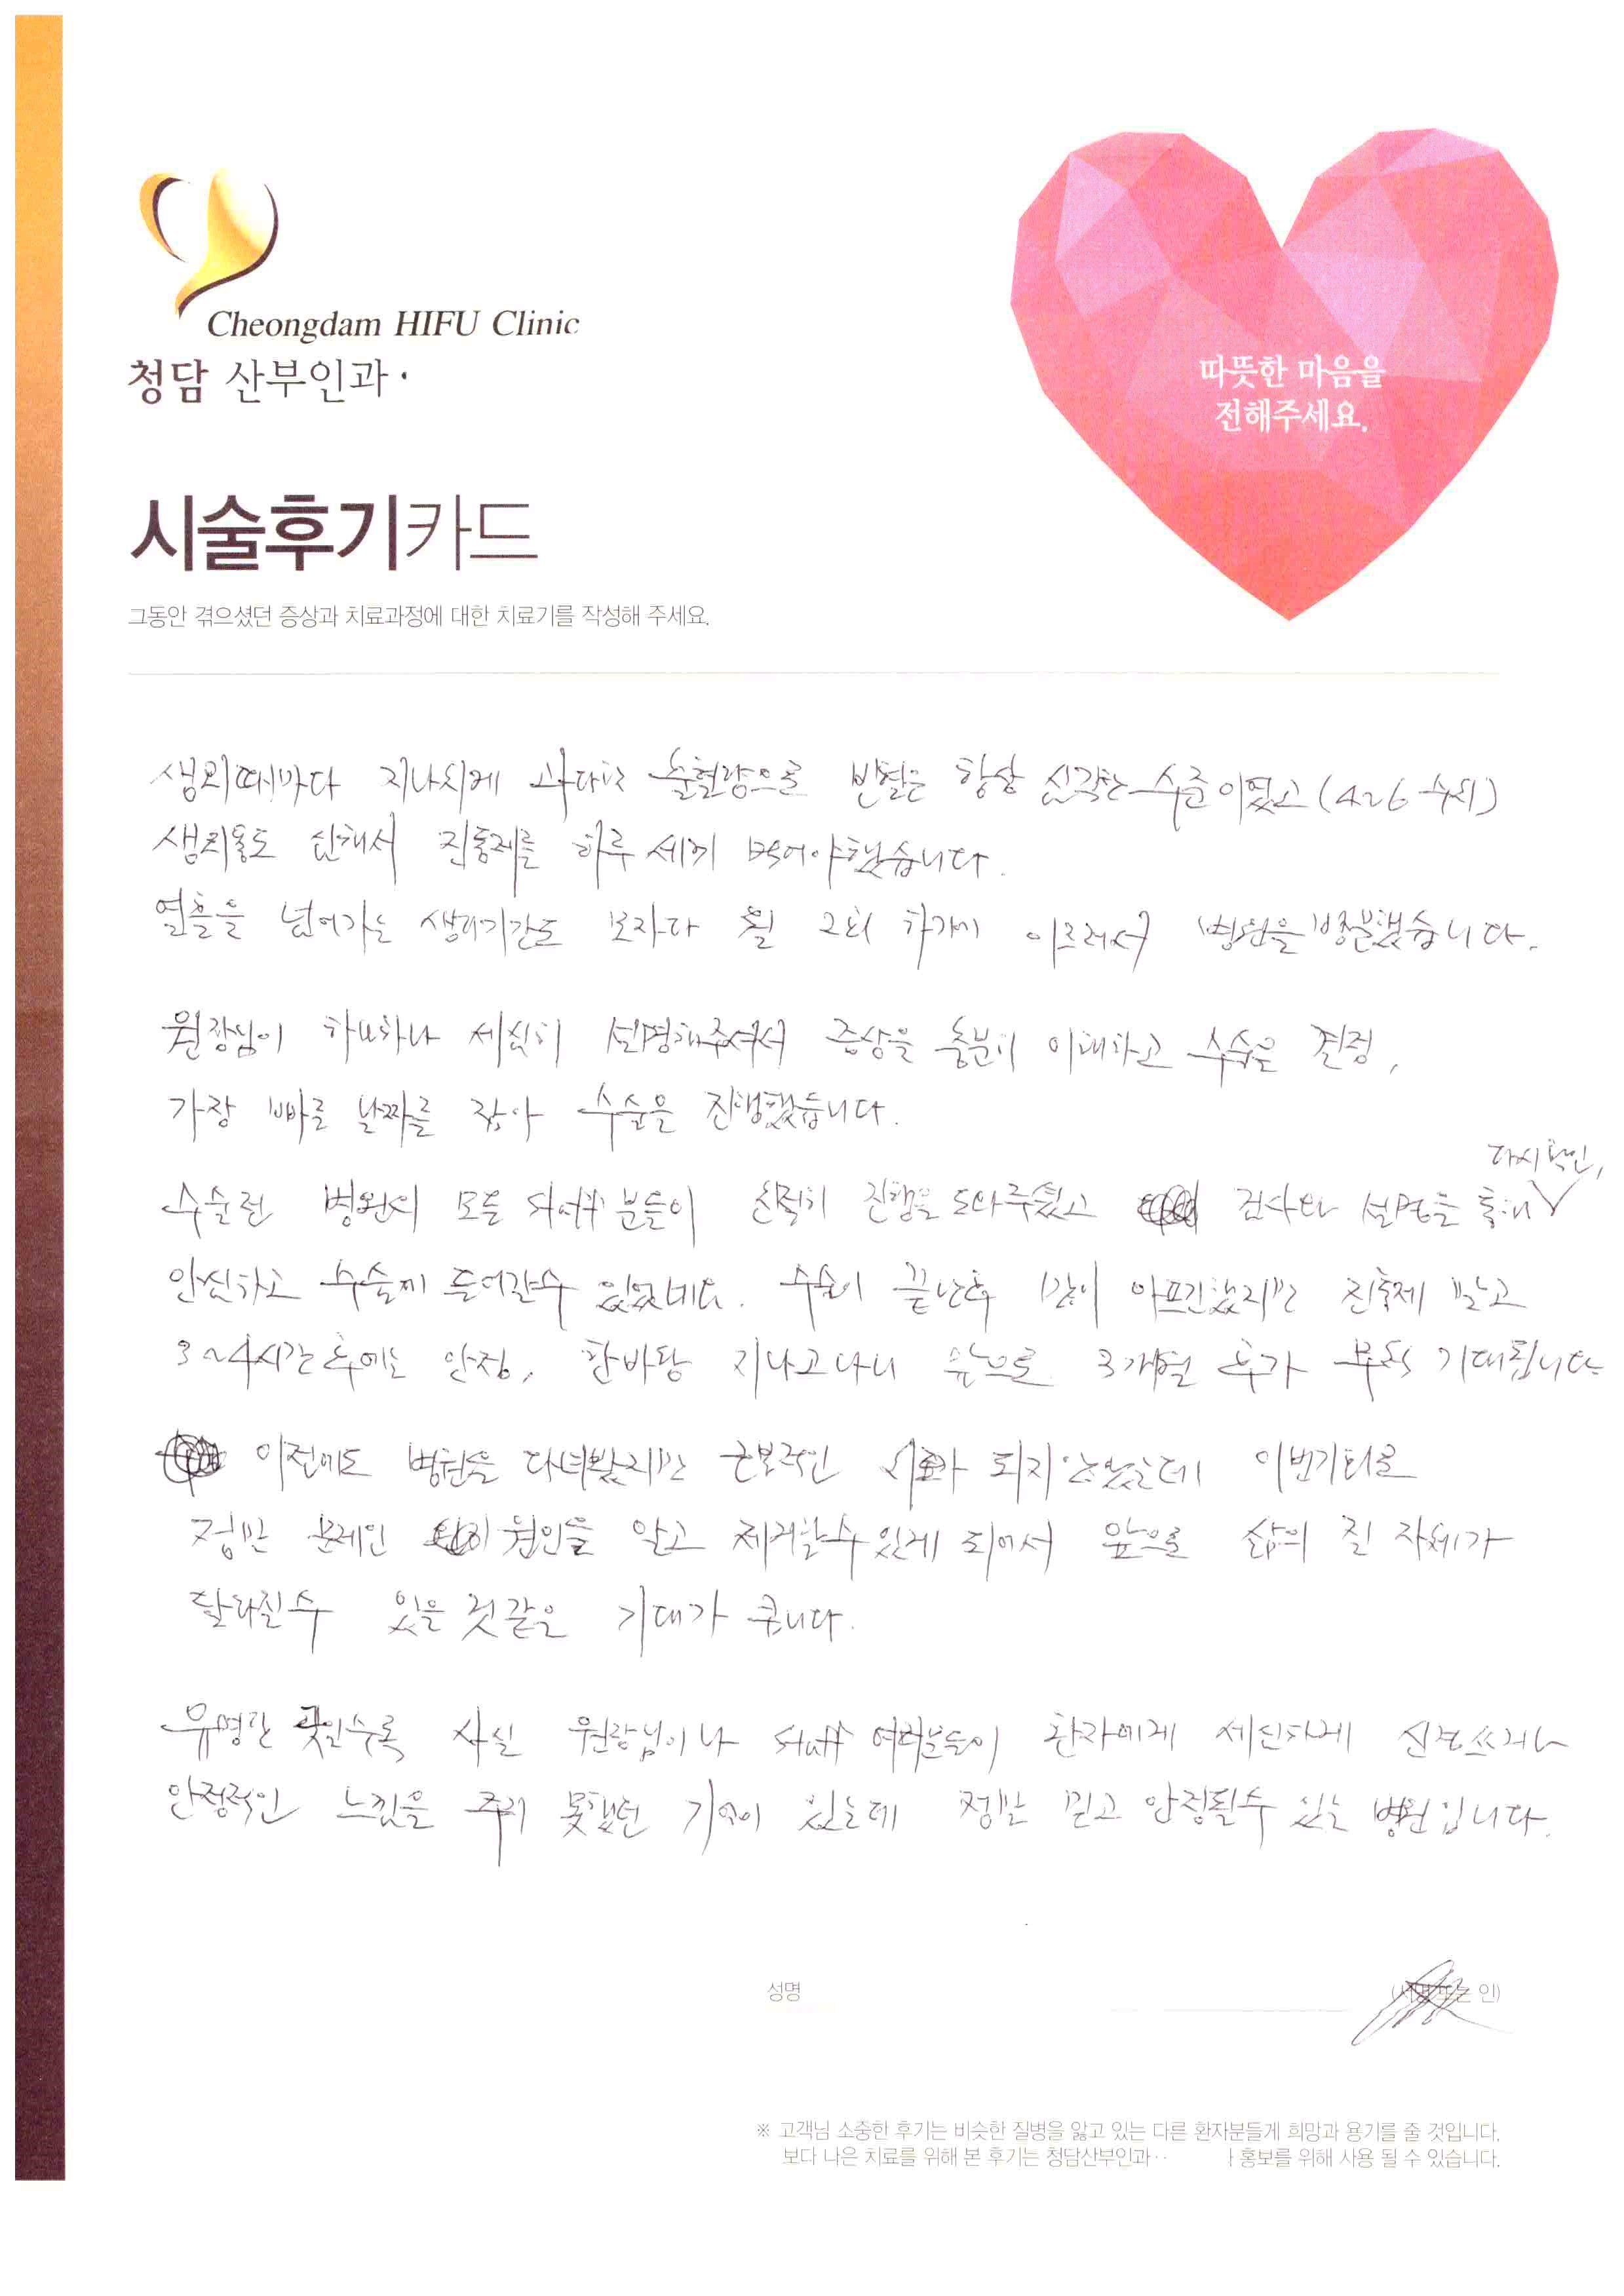 Cheongdam HIFU Clinic
청담 산부인과
따뜻한 마음을
전해주세요.
시술후기카드
그동안 겪으셨던 증상과 치료과정에 대한 치료기를 작성해 주세요.
생리때마다 지나치게 과다한 출혈량으로 빈혈은 항상 심각한 수준이었고 (4~6 수치)
생리통도 심해서 진통제를 하루 세끼 먹어야했습니다.
열흘을 넘어가는 생리기간도 모자라 월 2회 하기에 이르러서 병원을 방문했습니다.
원장님이 하나하나 세심히 설명해주셔서 증상을 충분히 이해하고 수술을 결정,
가장 빠른 날짜를 잡아 수술을 진행했습니다.
다시 확인,
수술전 병원의 모든 staff 분들이 친절히 진행을 도와주셨고 검사와 설명을 통해
안심하고 수술에 들어갈수 있었네요. 수술이 끝난후 많이 아프긴했지만 진통제 맞고
3~4시간 후에는 안정, 한바탕 지나고나니 앞으로 3개월 후가 무척 기대됩니다
이전에도 병원을 다녀봤지만 근본적인 치료가 되지 않았는데 이번기회로
정말 문제인 원인을 알고 제거할수 있게 되어서 앞으로 삶의 질 자체가
달라질수 있을 것같은 기대가 큽니다.
유명한 곳일수록 사실 원장님이나 staff 여러분들이 환자에게 세심하게 신경쓰거나
안정적인 느낌을 주지 못했던 기억이 있는데 정말 믿고 안정될수 있는 병원입니다.
성명
인)
※ 고객님 소중한 후기는 비슷한 질병을 앓고 있는 다른 환자분들게 희망과 용기를 줄 것입니다.
보다 나은 치료를 위해 본 후기는 청담산부인과 홍보를 위해 사용 될 수 있습니다.